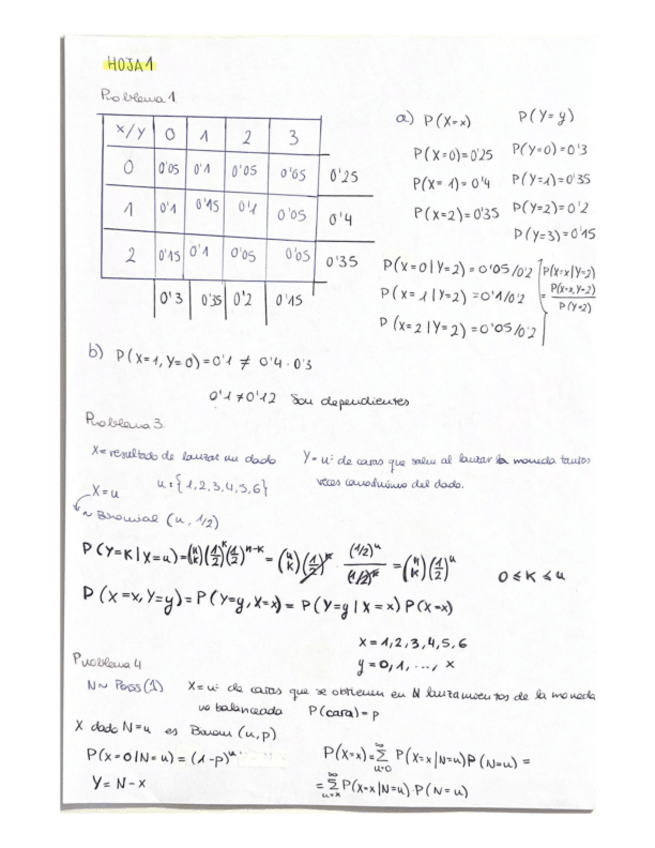 HOJA 1
Problema 1
X/Y 0 1 2 3
0 0'05 0'1 0'05 0'05 0'25
1 0'1 0'15 0'1 0'05 0'4
2 0'15 0'1 0'05 0'05 0'35
0'3 0'35 0'2 0'15
a) P(X=x) P(Y=y)
P(X=0)=0'25 P(Y=0)=0'3
P(X=1)=0'4 P(Y=1)=0'35
P(X=2)=0'35 P(Y=2)=0'2
P(Y=3)=0'15
P(X=0|Y=2)=0'05/0'2
P(X=1|Y=2)=0'1/0'2
P(X=2|Y=2)=0'05/0'2
P(X=x|Y=2)
= P(X=x,Y=2)/P(Y=2)
b) P(X=1,Y=0)=0'1 ≠ 0'4·0'3
0'1≠0'12 Son dependientes
Problema 3
X=resultado de lanzar un dado Y=nº de caras que salen al lanzar la moneda tantas
veces como número del dado.
X=n n:{1,2,3,4,5,6}
~Binomial (n, 1/2)
P(Y=K|X=n)=(n K)(1/2)^K(1/2)^n-K = (n K)(1/2)^K · (1/2)^n/(1/2)^K = (n K)(1/2)^n 0≤K≤n
P(X=x,Y=y)=P(Y=y,X=x)=P(Y=y|X=x)P(X=x)
x=1,2,3,4,5,6
y=0,1,...,x
Problema 4
N~Poiss(1) X=nº de caras que se obtienen en N lanzamientos de la moneda
no balanceada P(cara)=p
X dado N=n es Binom (n,p)
P(X=0|N=n)=(1-p)^n
Y=N-X
P(X=x)=∑_{n=0}^∞ P(X=x|N=n)P(N=n)=
=∑_{n=x}^∞ P(X=x|N=n)·P(N=n)